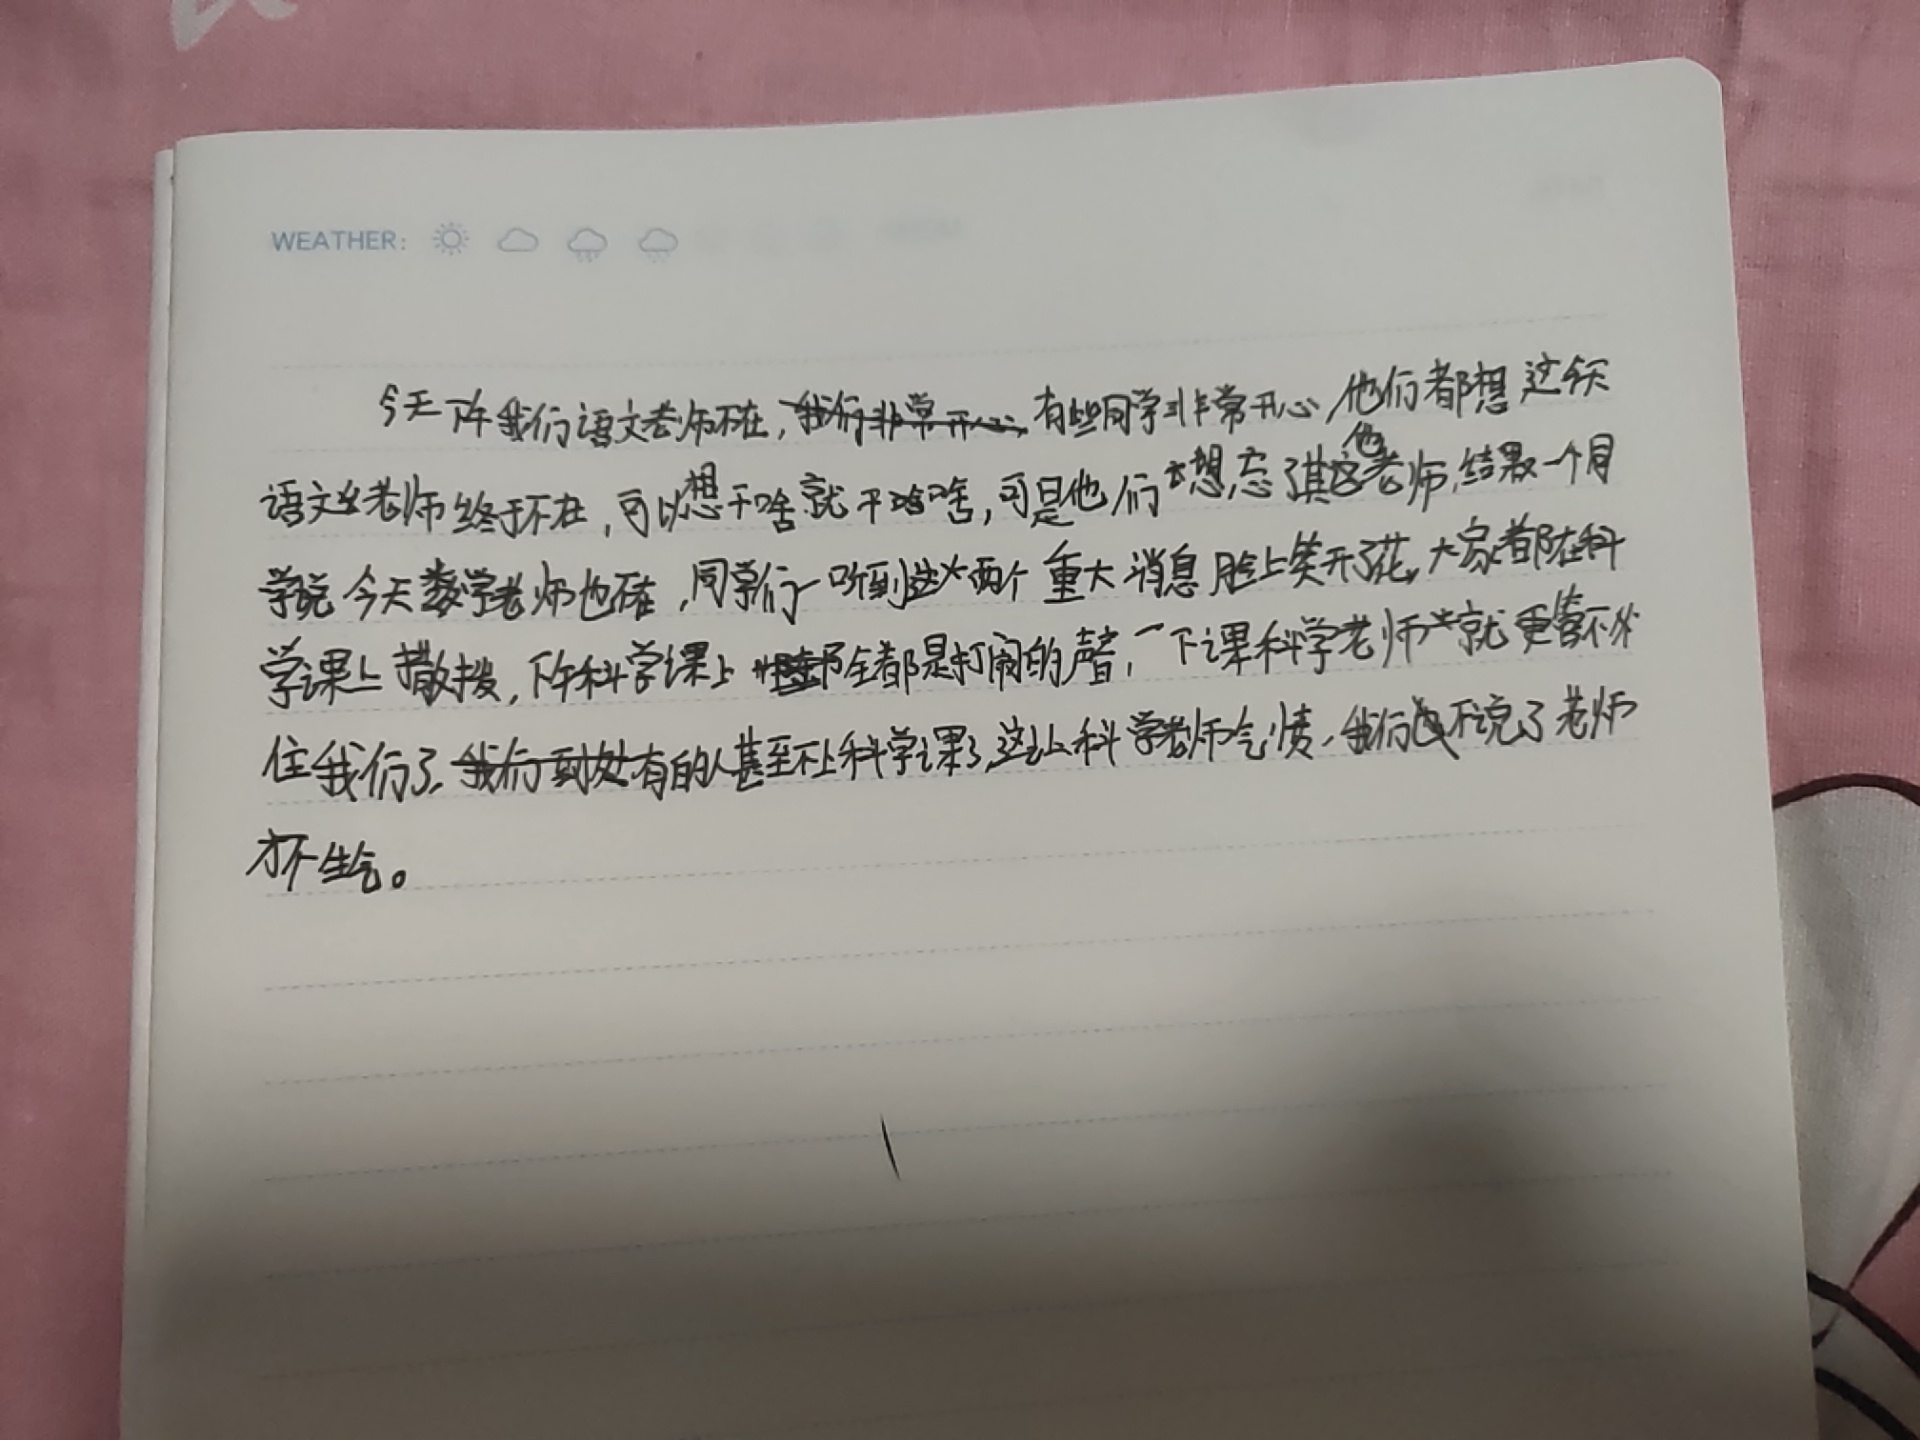 WEATHER:
今天下午我们语文老师不在，我们非常开心，有些同学非常开心，他们都想这天
语文老师终于不在，可以想干啥就干啥，可是他们想忘了其他老师，结果一个同
学说今天数学老师也不在，同学们一听到这两个重大消息脸上笑开了花，大家都在科
学课上撒泼，下午科学课上全都是打闹的声音，一下课科学老师就更管不
住我们了，我们到处有的人甚至不上科学课了，这让科学老师气愤，我们不说了老师
才不生气。